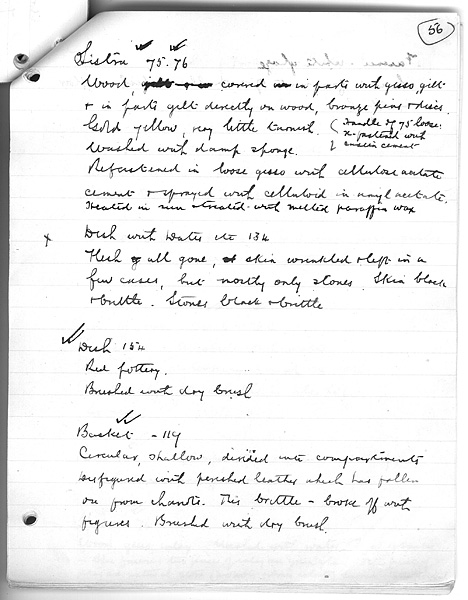 56
Sistra 75.76
Wood, covered in parts with gesso gilt
& in parts gilt directly on wood, bronze pins & discs.
Gold yellow, very little tarnish. (Handle of 75 loose.
Refastened with
Washed with damp sponge. casein cement
Refastened in loose gesso with cellulose acetate
cement & sprayed with celluloid in amyl acetate.
Heated in sun & treated with melted paraffin wax
x Dish with Dates etc 154
Flesh all gone, skin wrinkled & left in a
few cases, but mostly only stones. Skin black
& brittle. Stones black & brittle
Dish 154
Red pottery.
Brushed with dry brush
Basket - 119
Circular, shallow, divided into compartments
Disfigured with perished leather which has fallen
on from chariots. This brittle - broke off with
fingers. Brushed with dry brush.